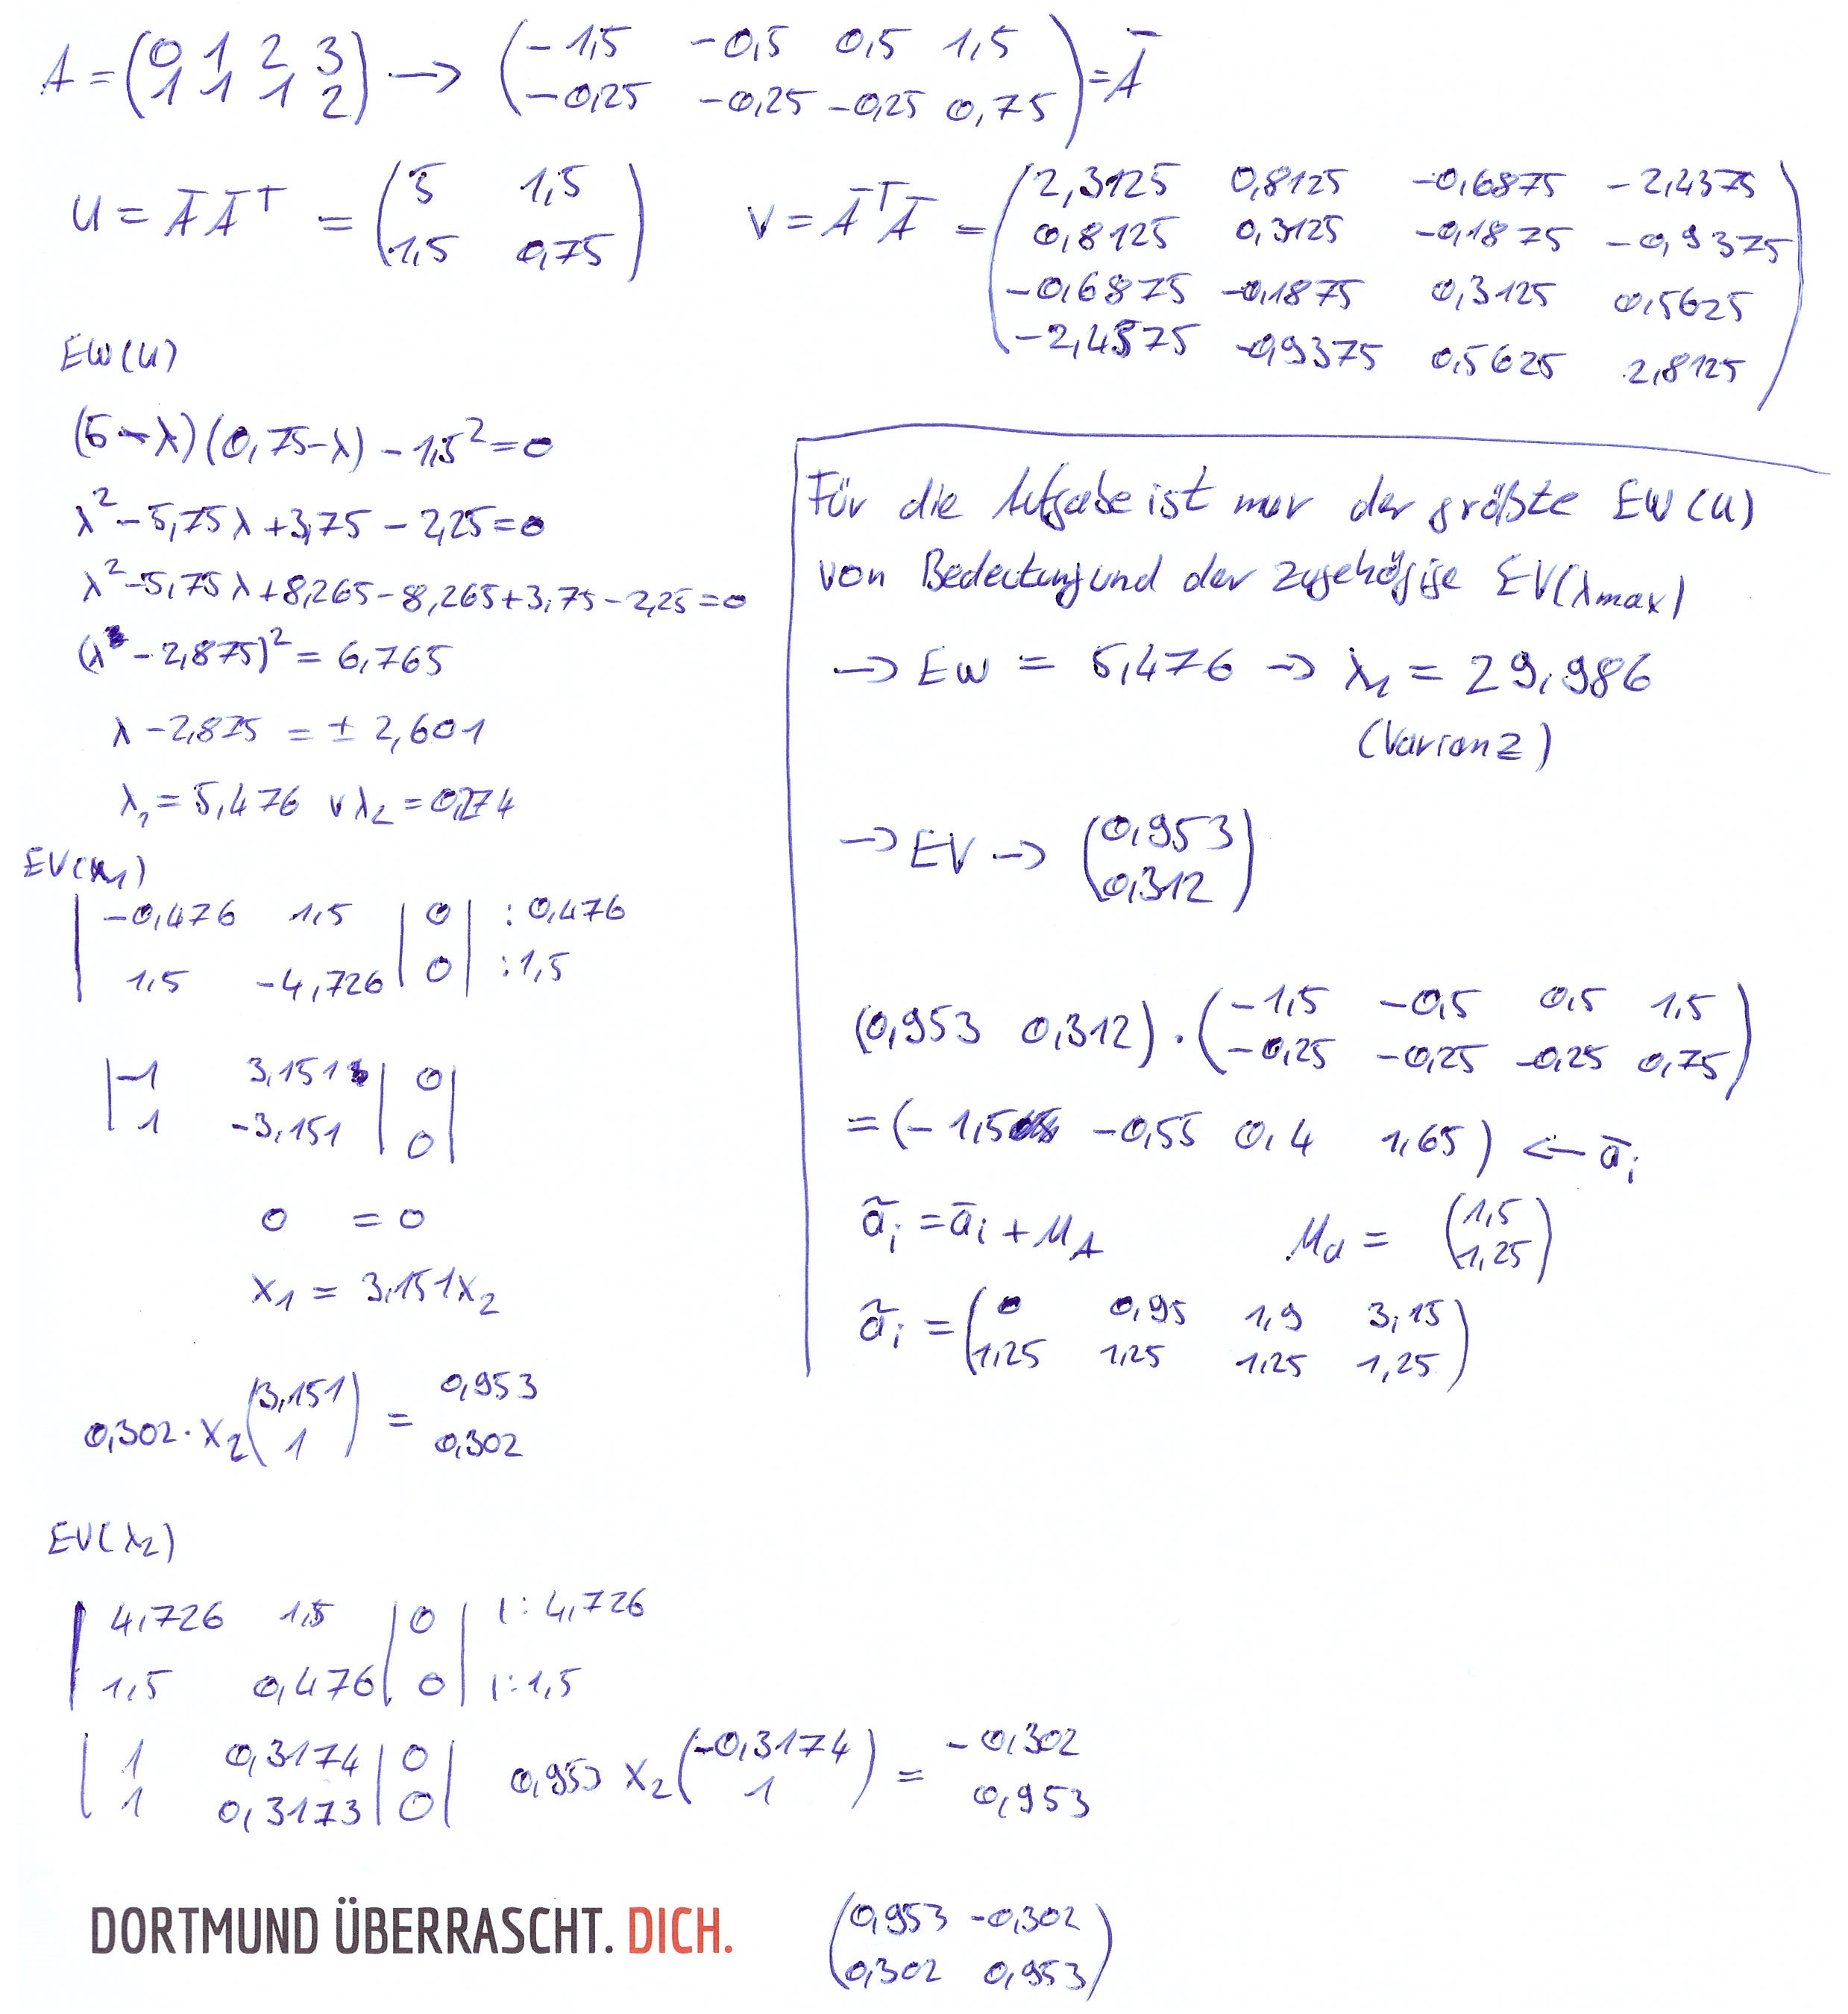 A = (0 1 2 3 / 1 1 1 2) → (-1,5 -0,5 0,5 1,5 / -0,25 -0,25 -0,25 0,75) = Ā
U = Ā Ā^T = (5 1,5 / 1,5 0,75)
V = Ā^T Ā = (2,3125 0,8125 -0,6875 -2,4375
0,8125 0,3125 -0,1875 -0,9375
-0,6875 -0,1875 0,3125 0,5625
-2,4375 -0,9375 0,5625 2,8125)
EW(U)
(5-λ)(0,75-λ) - 1,5² = 0
λ² - 5,75λ + 3,75 - 2,25 = 0
λ² - 5,75λ + 8,265 - 8,265 + 3,75 - 2,25 = 0
(λ - 2,875)² = 6,765
λ - 2,875 = ± 2,601
λ₁ = 5,476 v λ₂ = 0,274
EV(λ₁)
| -0,476 1,5 | 0 | : 0,476
1,5 -4,726 | 0 | : 1,5
| -1 3,151 | 0 |
1 -3,151 | 0 |
0 = 0
x₁ = 3,151x₂
0,302 · x₂ (3,151 / 1) = 0,953 / 0,302
EV(λ₂)
| 4,726 1,5 | 0 | |: 4,726
| 1,5 0,476 | 0 | |: 1,5
| 1 0,3174 | 0 |
1 0,3173 | 0 |
0,953 x₂ (-0,3174 / 1) = -0,302 / 0,953
Für die Aufgabe ist nur der größte EW(U)
von Bedeutung und der zugehörige EV(λmax)
→ EW = 5,476 → λ₁ = 29,986
(Varianz)
→ EV → (0,953 / 0,312)
(0,953 0,312) · (-1,5 -0,5 0,5 1,5 / -0,25 -0,25 -0,25 0,75)
= (-1,5 -0,55 0,4 1,65) ← āᵢ
ãᵢ = āᵢ + M_A M_a = (1,5 / 1,25)
ãᵢ = (0 0,95 1,9 3,15 / 1,25 1,25 1,25 1,25)
DORTMUND ÜBERRASCHT. DICH.
(0,953 -0,302 / 0,302 0,953)